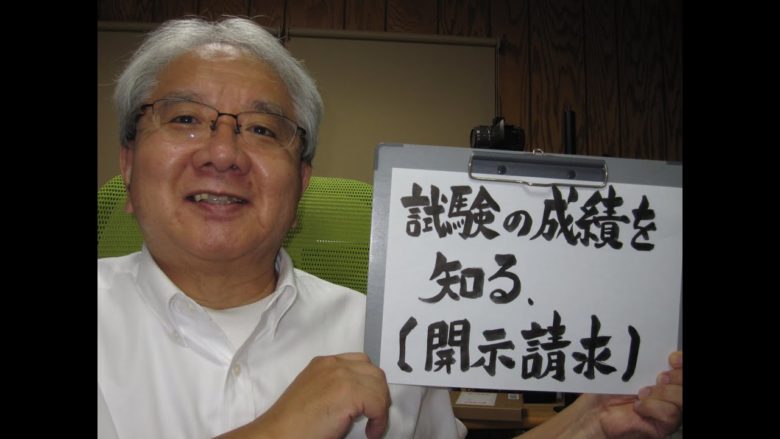 試験の成績を
知る、
(開示請求)